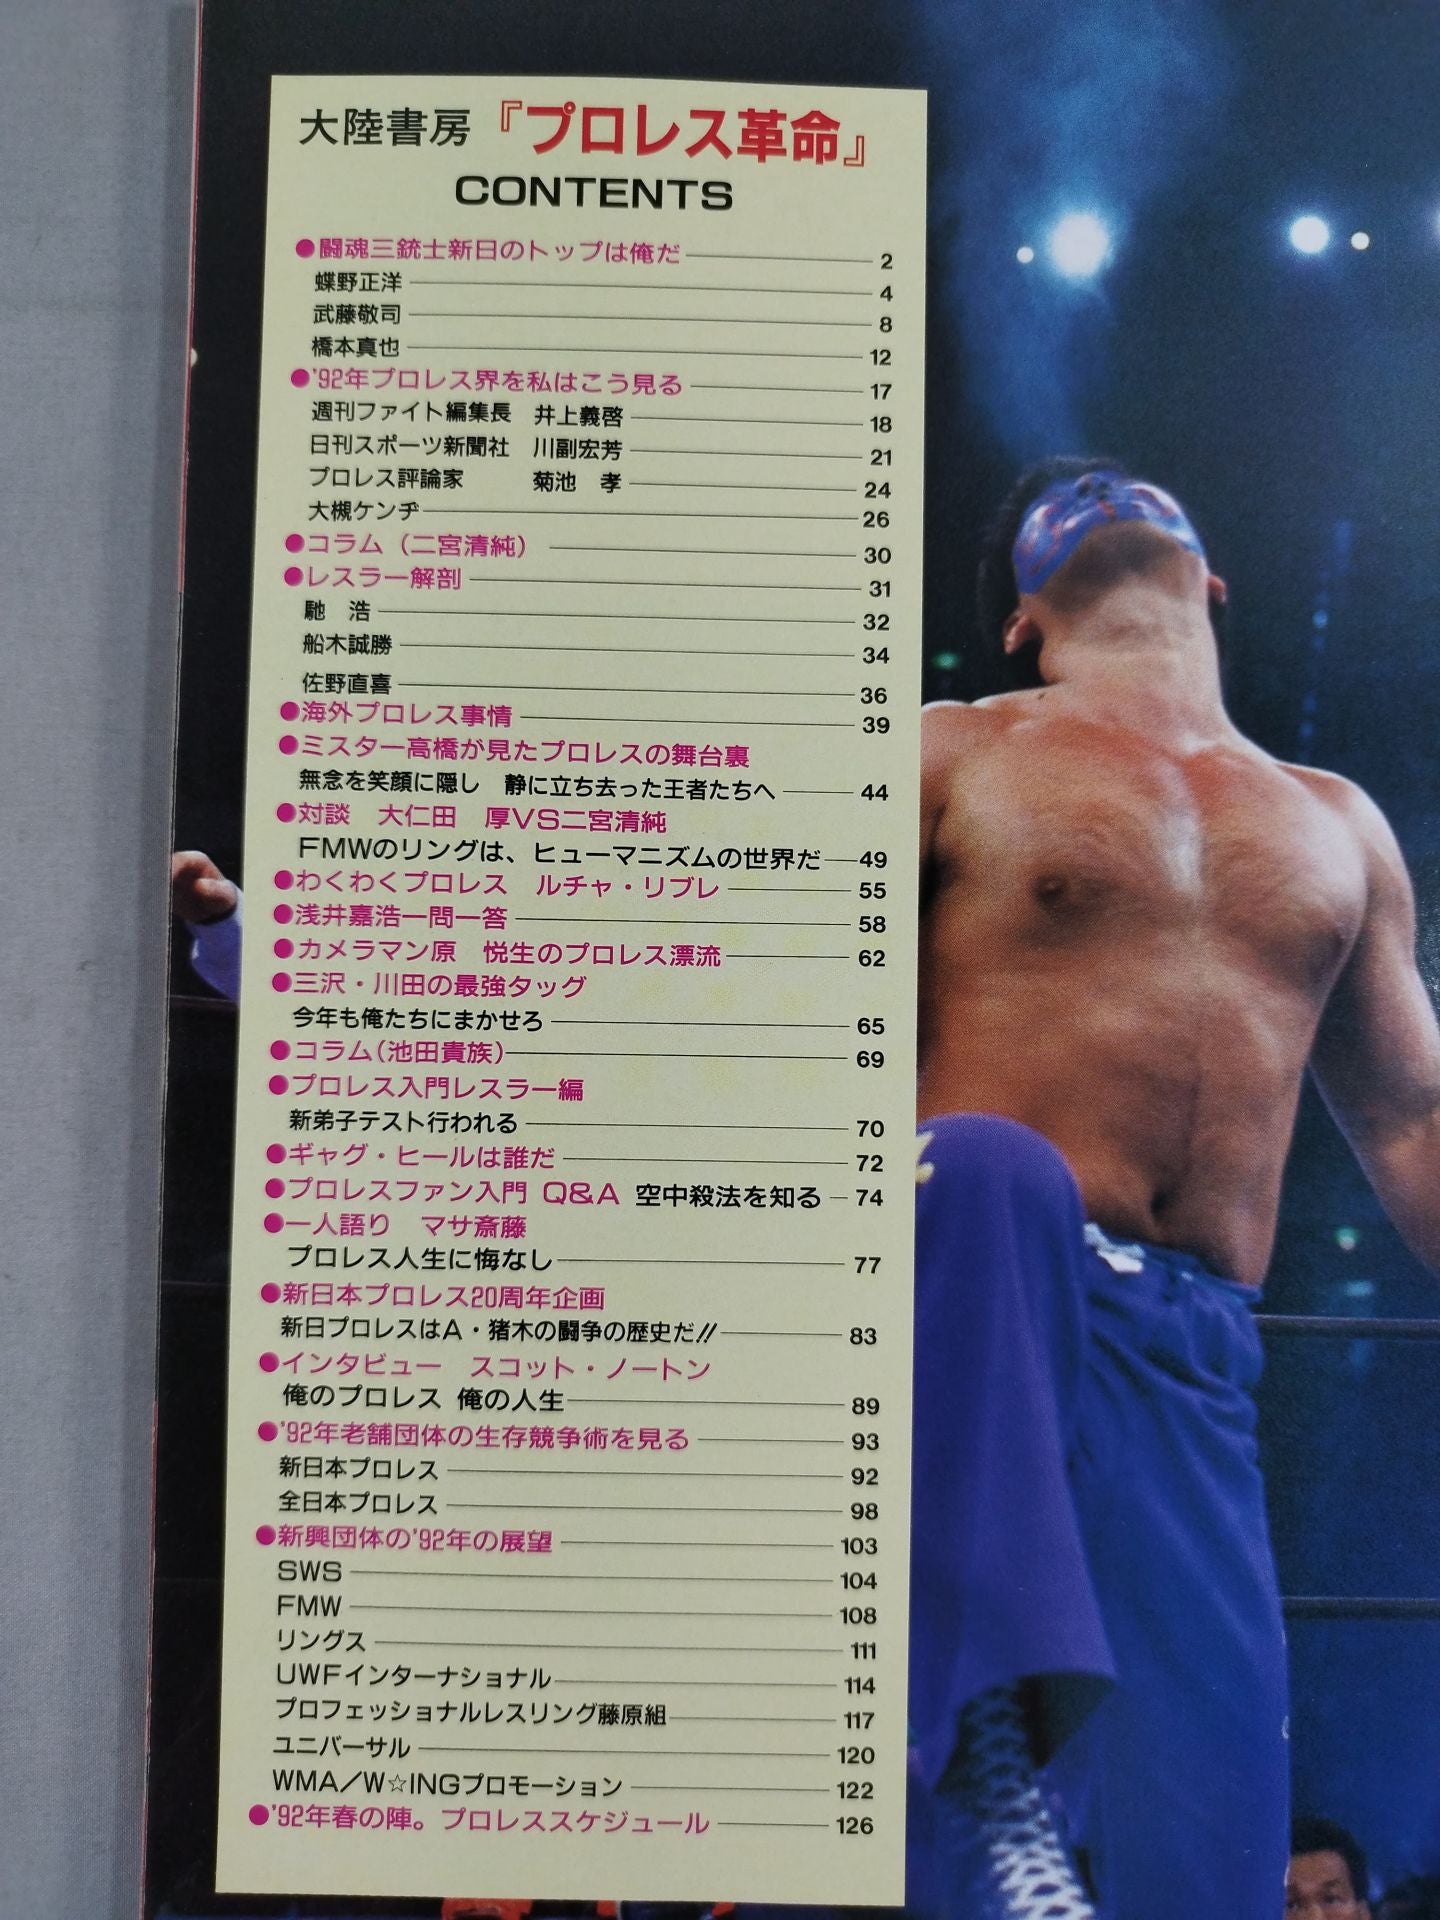 大陸書房『プロレス革命』
CONTENTS
●闘魂三銃士新日のトップは俺だ 2
蝶野正洋 4
武藤敬司 8
橋本真也 12
●'92年プロレス界を私はこう見る 17
週刊ファイト編集長 井上義啓 18
日刊スポーツ新聞社 川副宏芳 21
プロレス評論家 菊池 孝 24
大槻ケンヂ 26
●コラム（二宮清純） 30
●レスラー解剖 31
馳 浩 32
船木誠勝 34
佐野直喜 36
●海外プロレス事情 39
●ミスター高橋が見たプロレスの舞台裏
無念を笑顔に隠し 静に立ち去った王者たちへ 44
●対談 大仁田 厚VS二宮清純
FMWのリングは、ヒューマニズムの世界だ 49
●わくわくプロレス ルチャ・リブレ 55
●浅井嘉浩一問一答 58
●カメラマン原 悦生のプロレス漂流 62
●三沢・川田の最強タッグ
今年も俺たちにまかせろ 65
●コラム(池田貴族) 69
●プロレス入門レスラー編
新弟子テスト行われる 70
●ギャグ・ヒールは誰だ 72
●プロレスファン入門 Q&A 空中殺法を知る 74
●一人語り マサ斎藤
プロレス人生に悔なし 77
●新日本プロレス20周年企画
新日プロレスはA・猪木の闘争の歴史だ!! 83
●インタビュー スコット・ノートン
俺のプロレス 俺の人生 89
●'92年老舗団体の生存競争術を見る 93
新日本プロレス 92
全日本プロレス 98
●新興団体の'92年の展望 103
SWS 104
FMW 108
リングス 111
UWFインターナショナル 114
プロフェッショナルレスリング藤原組 117
ユニバーサル 120
WMA／W☆INGプロモーション 122
●'92年春の陣。プロレススケジュール 126